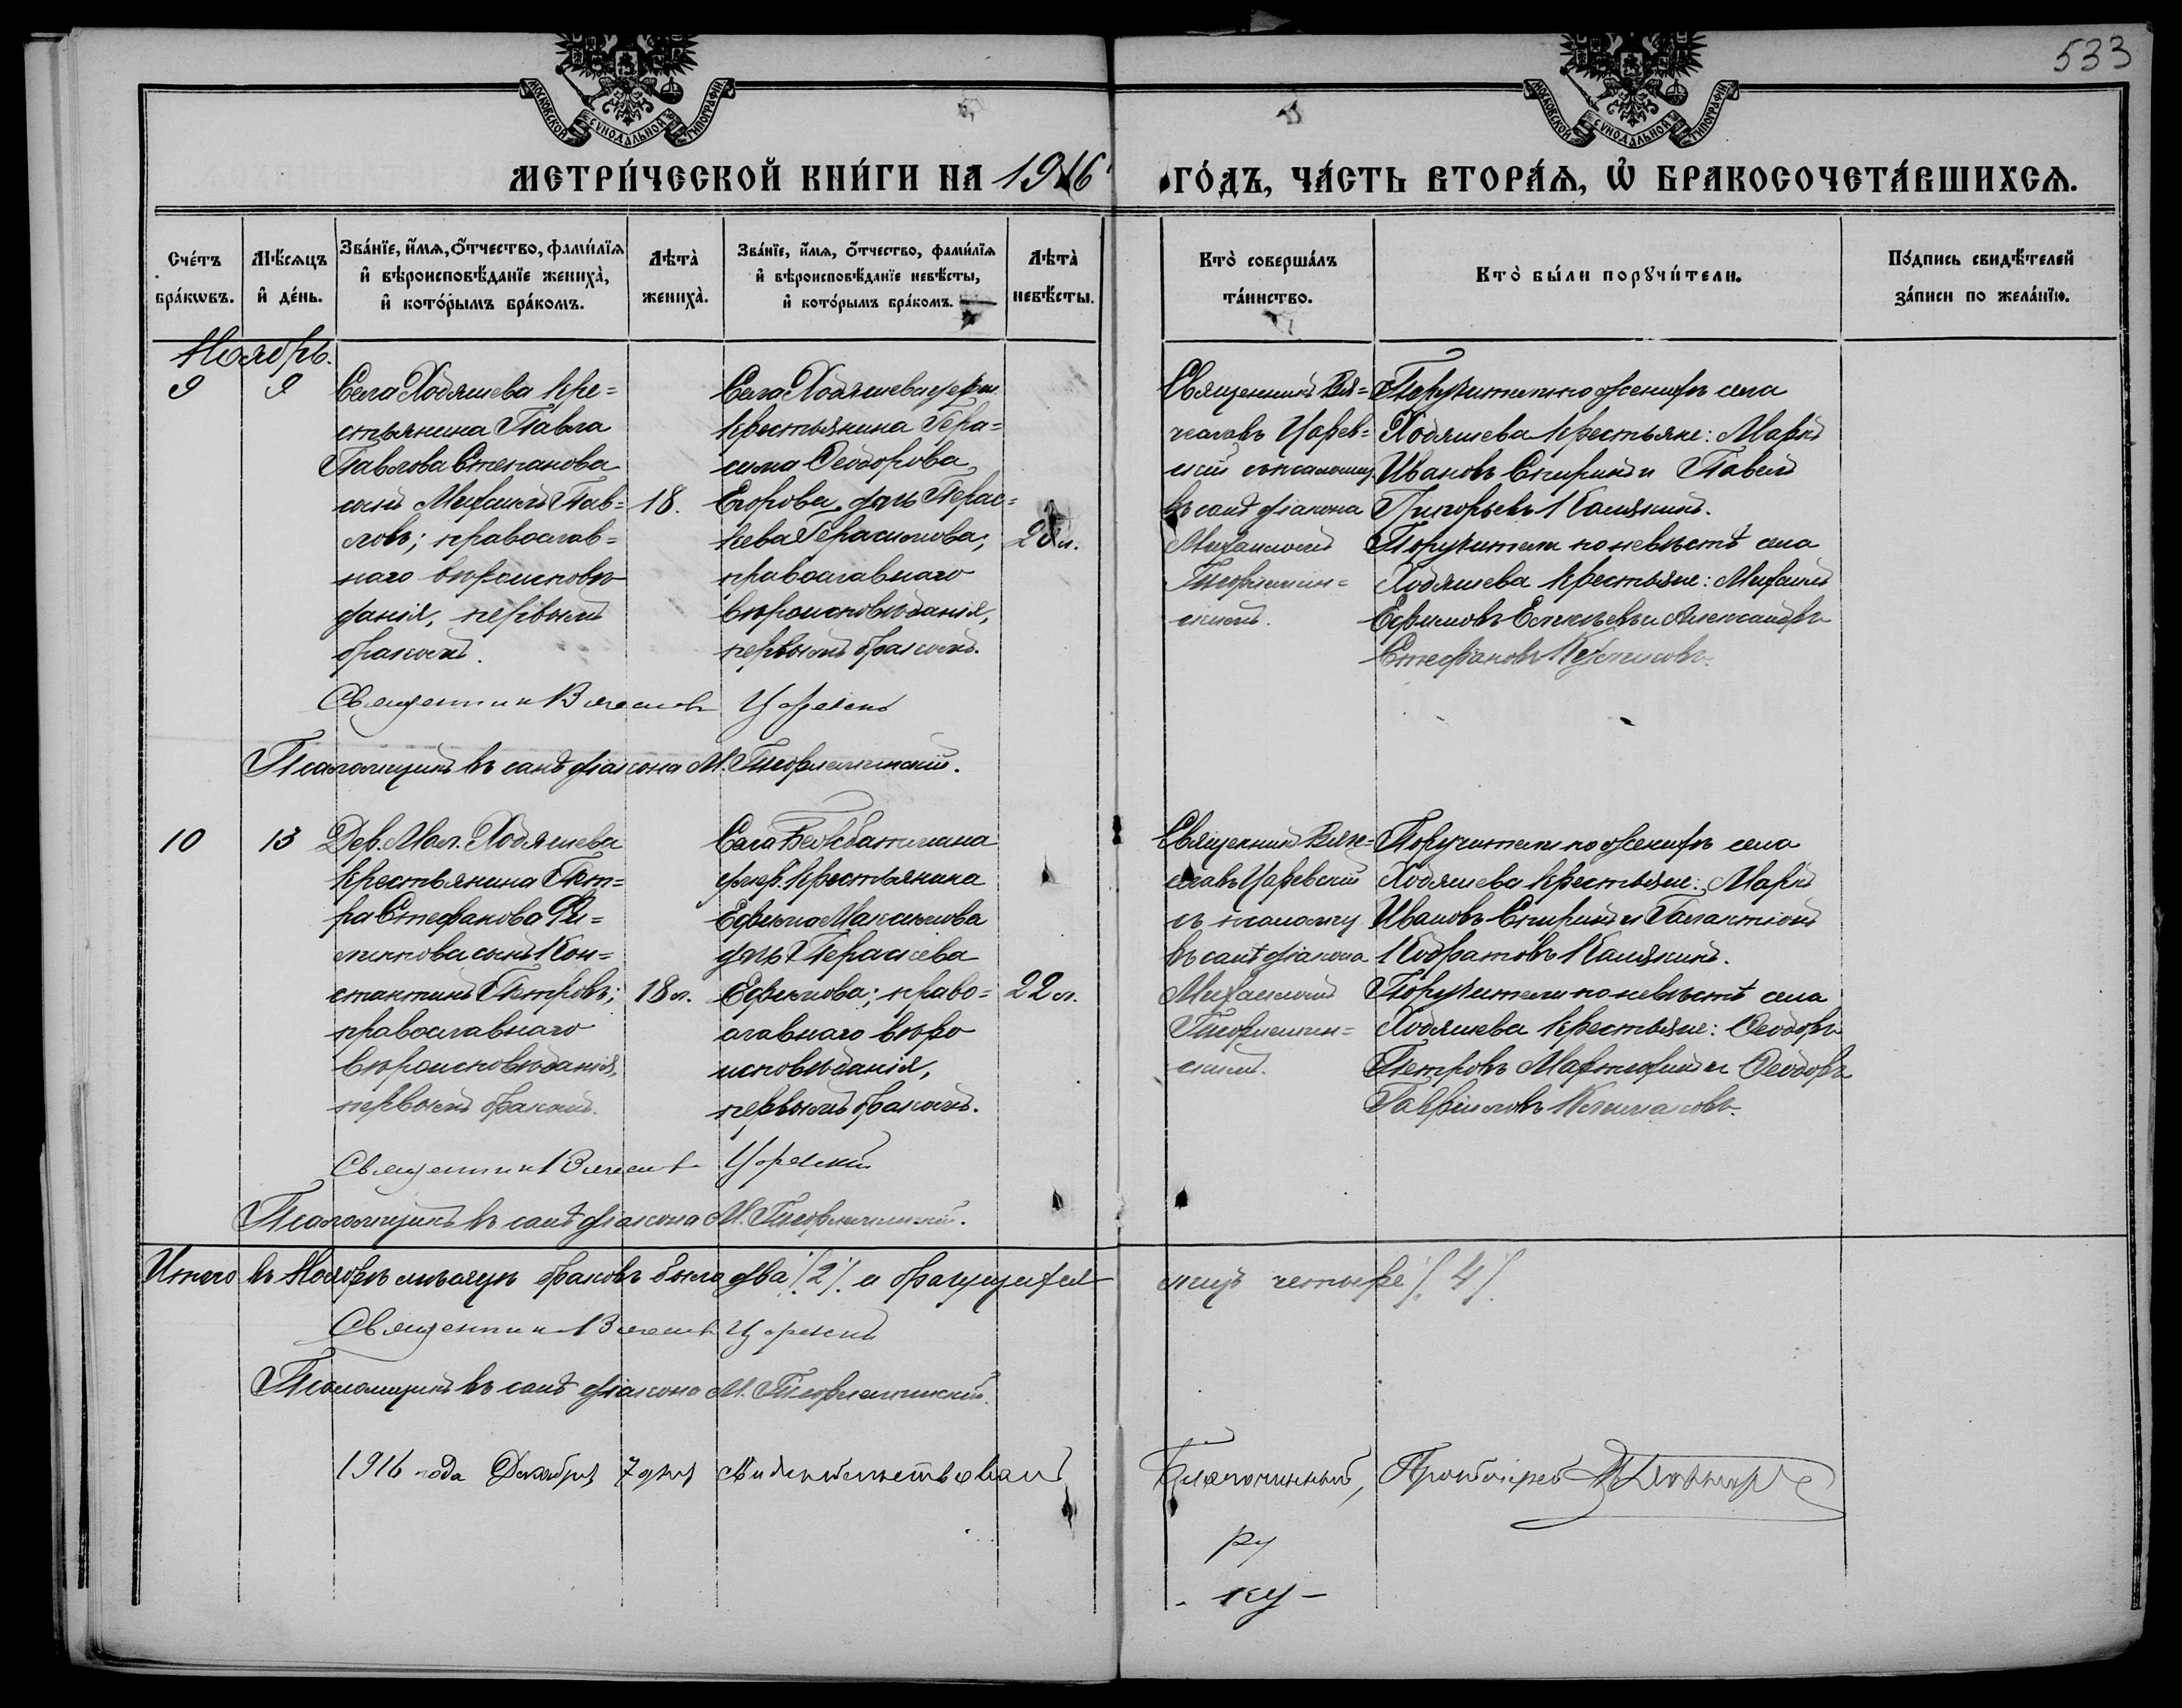 533
МОСКОВСКОЙ СѴНОДАЛЬНОЙ ТИПОГРАФІИ
МОСКОВСКОЙ СѴНОДАЛЬНОЙ ТИПОГРАФІИ
МЕТРИ́ЧЕСКОЙ КНИ́ГИ НА 1916 ГО́ДЪ, ЧА́СТЬ ВТОРА́Ѧ, Ѡ҆ БРАКОСОЧЕТА́ВШИХСѦ.
Сче́тъ
бра́кѡвъ.
Мѣ́сѧцъ
и҆ де́нь.
Зва́нїе, и҆́мѧ, ѻ҆́тчество, фами́лїѧ
и҆ вѣроисповѣ́данїе жениха̀,
и҆ кото́рымъ бра́комъ.
Лѣта̀
жениха̀.
Зва́нїе, и҆́мѧ, ѻ҆́тчество, фами́лїѧ
и҆ вѣроисповѣ́данїе невѣ́сты,
и҆ кото́рымъ бра́комъ.
Лѣта̀
невѣ́сты.
Кто̀ соверша́лъ
та́инство.
Кто̀ бы́ли порꙋчи́тели.
По́дпись свидѣ́телей
за́писи по жела́нїю.
Ноябрь.
9
9
Села Ходяшева кре=
стьянина Павла
Павлова Степанова
сынъ Михаилъ Пав=
ловъ; православ=
наго вѣроисповѣ
данія, первымъ
бракомъ.
18.
Села Ходяшева
крестьянина Гера=
сима Ѳеодорова
Егорова дчь Парас=
кева Герасимова;
православнаго
вѣроисповѣданія,
первымъ бракомъ.
Священникъ Вя=
чеславъ Царев=
скій съ псаломщ.
въ санѣ діакона
Михаиломъ
Поручители по женихѣ села
Ходяшева крестьяне: Маркъ
Ивановъ Спиринъ и Павелъ
Григорьевъ
Поручители по невѣстѣ села
Ходяшева крестьяне: Михаилъ
Ефимовъ и Александръ
Стефановъ
Священникъ Вячеславъ Царевскій
Псаломщикъ въ санѣ діакона М.
10
13
Дер. Мал. Ходяшева
крестьянина Пет=
ра Стефанова Фи=
липпова сынъ Кон=
стантинъ Петровъ;
православнаго
вѣроисповѣданія,
первымъ бракомъ.
18 л.
Села
дер. крестьянина
Ефима Максимова
дчь Параскева
Ефимова; право=
славнаго вѣро
исповѣданія,
первымъ бракомъ.
22 л.
Священникъ Вяче=
славъ Царевскій
съ псаломщ.
въ санѣ діакона
Михаиломъ
Поручители по женихѣ села
Ходяшева крестьяне: Маркъ
Ивановъ Спиринъ и Галактіонъ
Кодратовъ
Поручители по невѣстѣ села
Ходяшева крестьяне: Ѳеодоръ
Петровъ и Ѳеодоръ
Гавриловъ
Священникъ Вячеславъ Царевскій
Псаломщикъ въ санѣ діакона М.
Итого въ Ноябрѣ мѣсяцѣ браковъ было два /2/ и брачущихся лицъ четыре /4/.
Священникъ Вячеславъ Царевскій
Псаломщикъ въ санѣ діакона М.
1916 года Декабря 7 дня Свидѣтельствовалъ Благочинный, Протоіерей